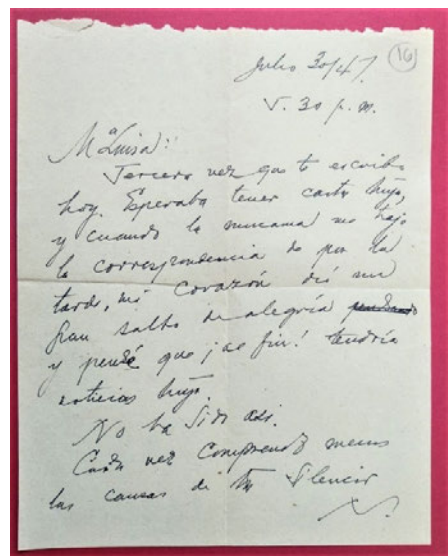 16
Julio 30/47.
5.30 p.m.
Mª Luisa:
Tercera vez que te escribo
hoy. Esperaba tener carta tuya,
y cuando la mucama me trajo
la correspondencia de por la
tarde, mi corazón dió un
gran salto de alegría
y pensé que ¡al fin! tendría
noticias tuyas.
No ha sido así.
Cada vez comprendo menos
las causas de tu silencio